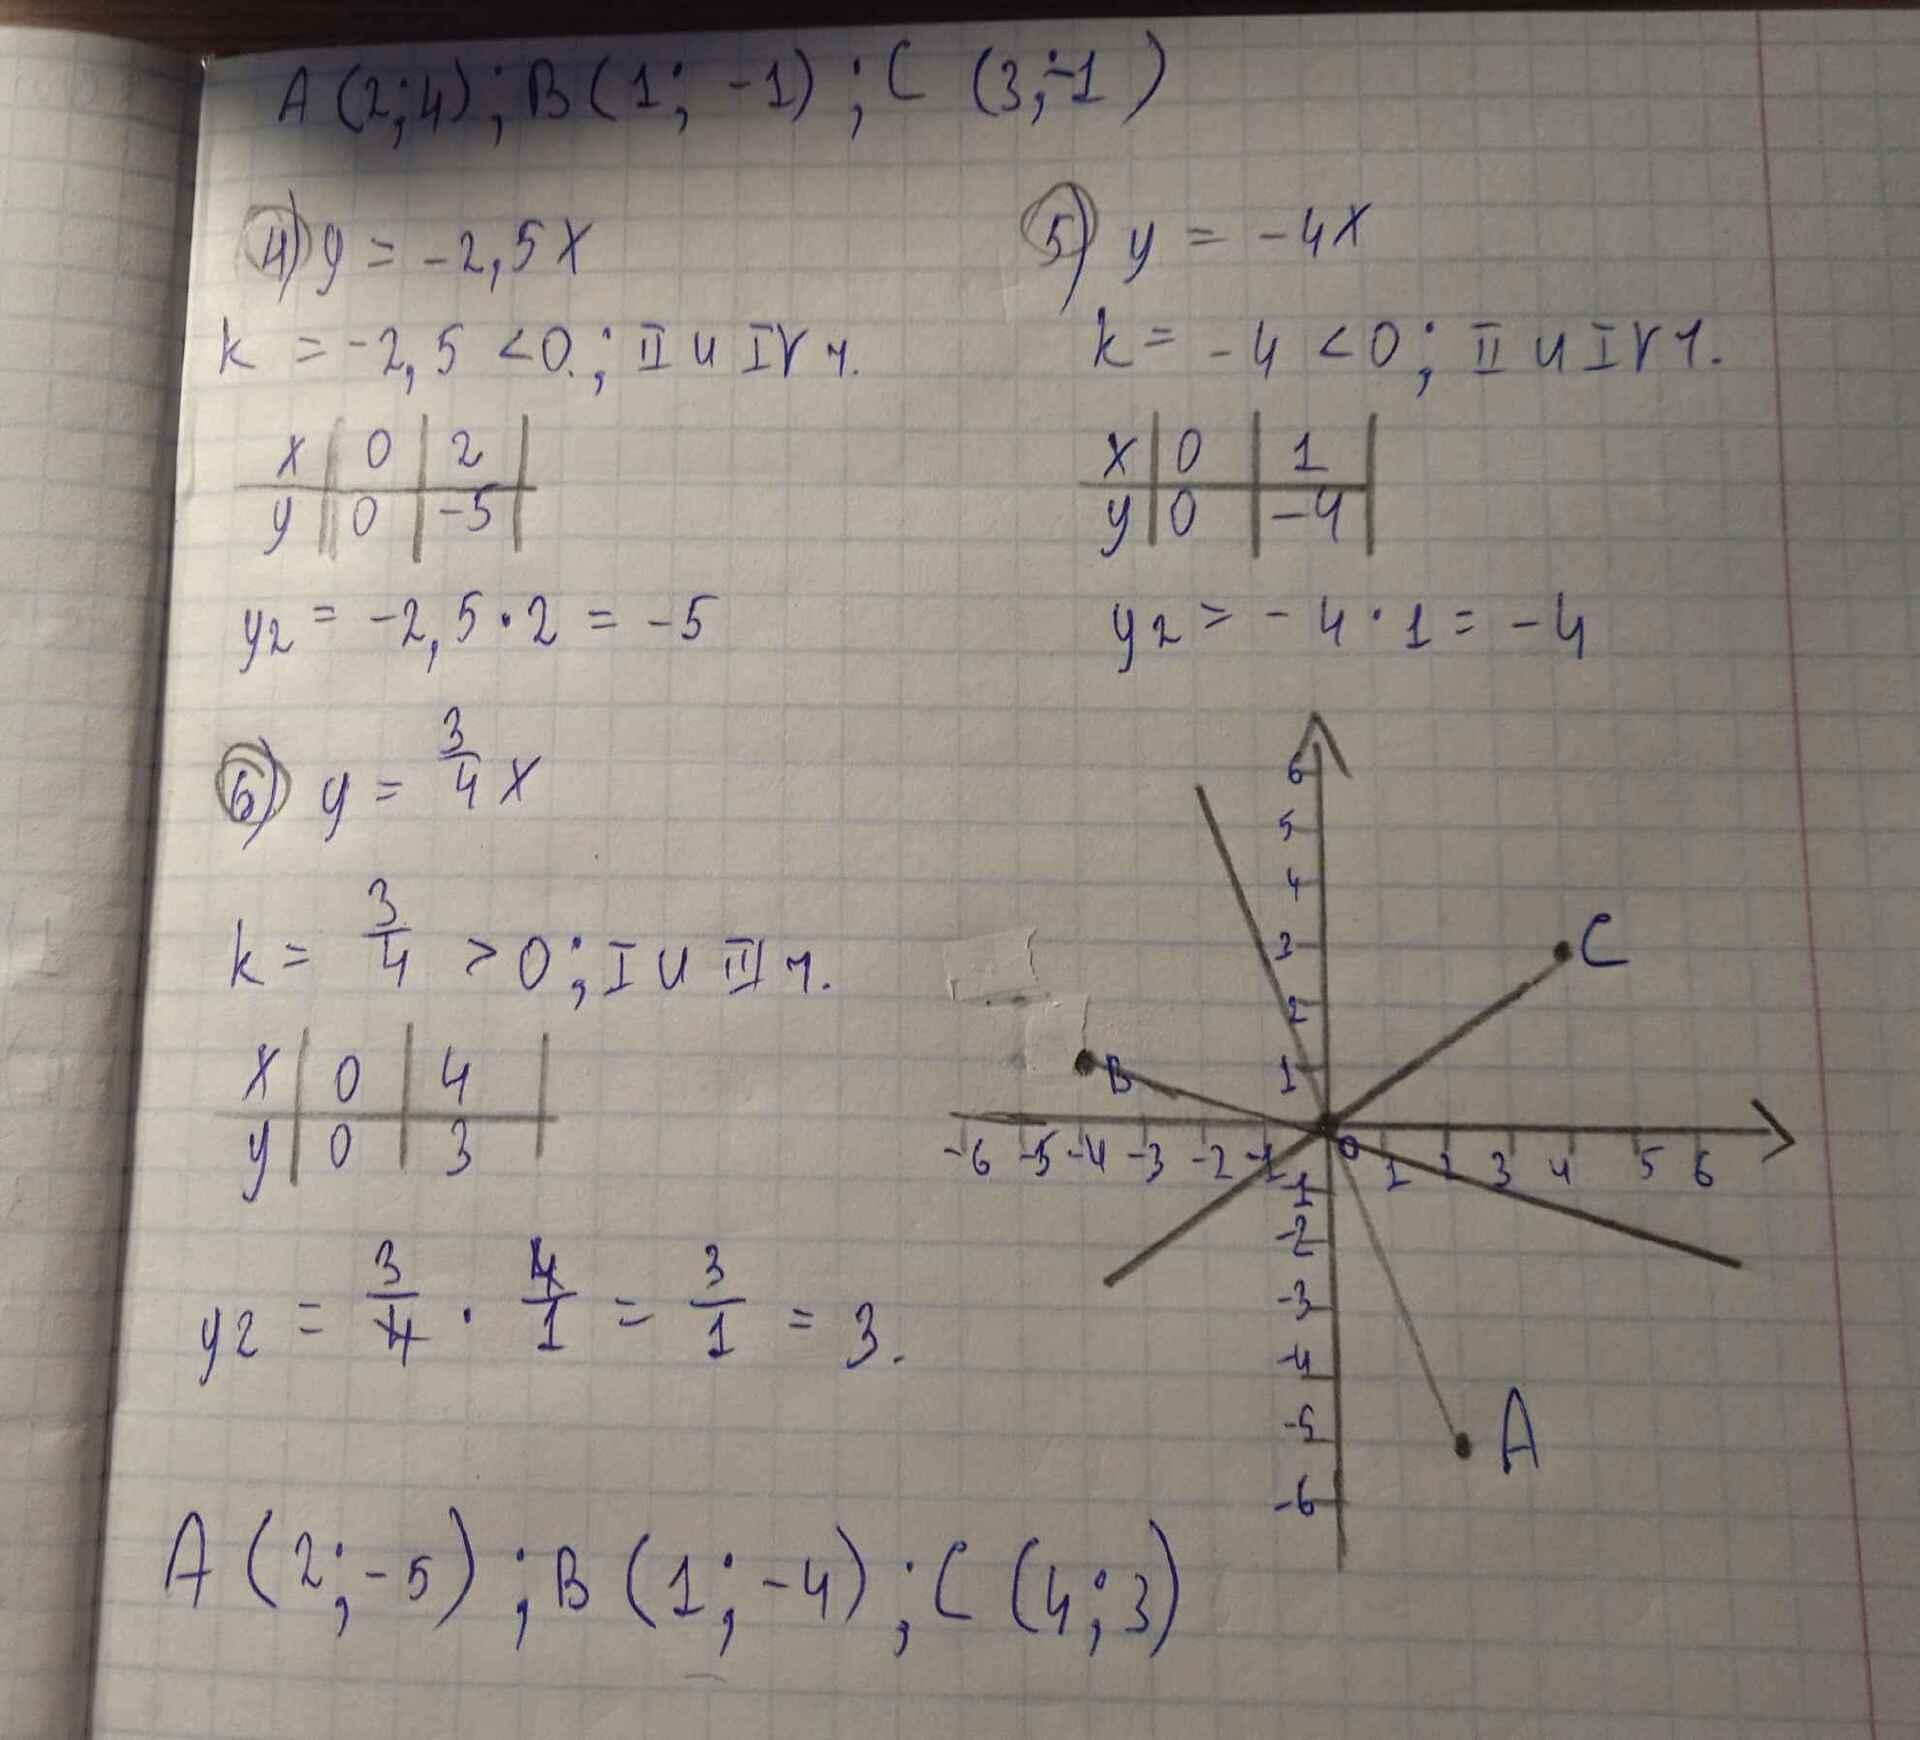 A (2;4) ; B (1; -1) ; C (3;-1)
4) y = -2,5x
k = -2,5 < 0. ; II и IV ч.
x | 0 | 2 |
y | 0 | -5 |
y2 = -2,5 · 2 = -5
5) y = -4x
k = -4 < 0 ; II и IV ч.
x | 0 | 1 |
y | 0 | -4 |
y2 = -4 · 1 = -4
6) y = 3/4 x
k = 3/4 > 0 ; I и III ч.
x | 0 | 4 |
y | 0 | 3 |
y2 = 3/4 · 4/1 = 3/1 = 3.
6
5
4
3
2
1
C
B
-6 -5 -4 -3 -2 -1 0 1 2 3 4 5 6
-1
-2
-3
-4
-5
-6
A
A (2;-5) ; B (1;-4) ; C (4;3)